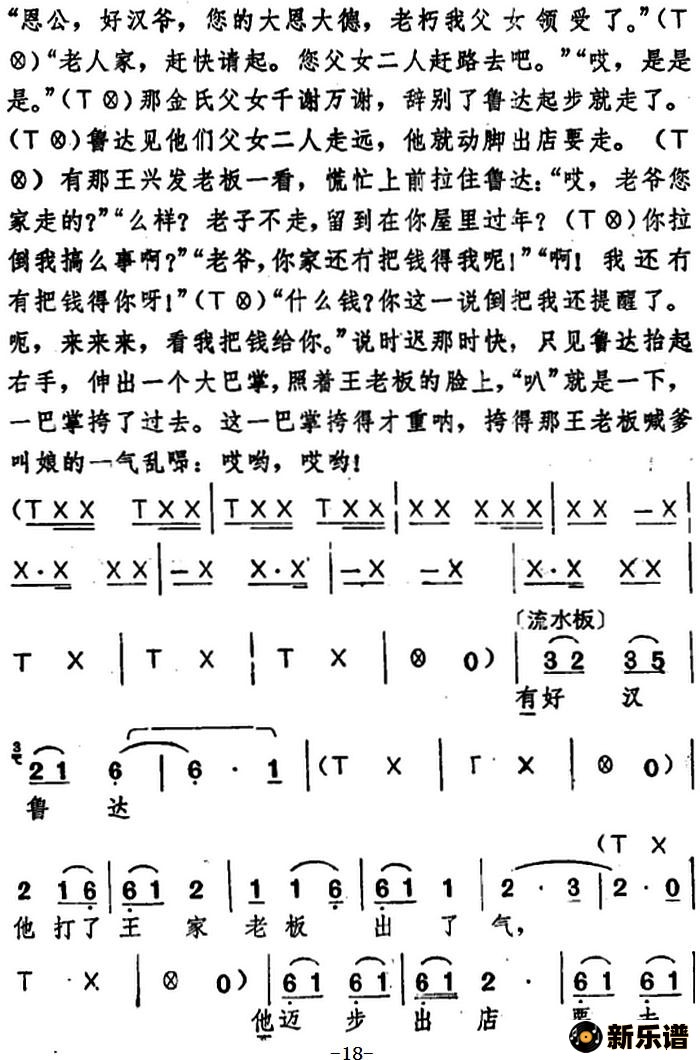 “恩公，好汉爷，您的大恩大德，老朽我父女领受了。”（T
⊗）“老人家，赶快请起。您父女二人赶路去吧。”“哎，是是
是。”（T ⊗）那金氏父女千谢万谢，辞别了鲁达起步就走了。
（T ⊗）鲁达见他们父女二人走远，他就动脚出店要走。（T
⊗）有那王兴发老板一看，慌忙上前拉住鲁达：“哎，老爷您
家走的？”“么样？老子不走，留到在你屋里过年？（T ⊗）你拉
倒我搞么事啊？”“老爷，你家还冇把钱得我呢！”“啊！我还冇
有把钱得你呀！”（T ⊗）“什么钱？你这一说倒把我还提醒了。
呃，来来来，看我把钱给你。”说时迟那时快，只见鲁达抬起
右手，伸出一个大巴掌，照着王老板的脸上，“叭”就是一下，
一巴掌挎了过去。这一巴掌挎得才重呐，挎得那王老板喊爹
叫娘的一气乱嗥：哎哟，哎哟！
（T X X T X X | T X X T X X | X X X X X | X X – X |
X · X X X | – X X · X | – X – X | X · X X X |
〔流水板〕
T X | T X | T X | ⊗ 0） | 3 2 3 5 |
有好 汉
3 2 1 6 | 6 · 1 |（T X | T X | ⊗ 0）|
鲁 达
（T X
2 1 6 | 6 1 2 | 1 1 6 | 6 1 1 | 2 · 3 | 2 · 0
他 打了 王 家 老 板 出 了 气，
T · X | ⊗ 0）| 6 1 6 1 | 6 1 2 · | 6 1 6 1 |
他迈 步 出 店
-18-
新乐谱